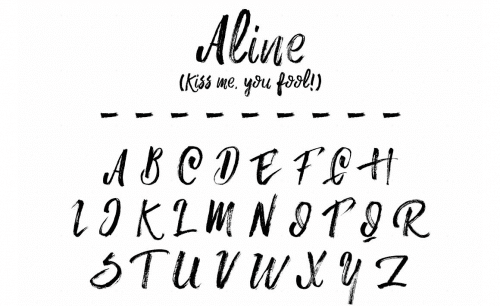 Aline
(Kiss me, you fool!)
A B C D E F G H
I J K L M N O P Q R
S T U V W X Y Z